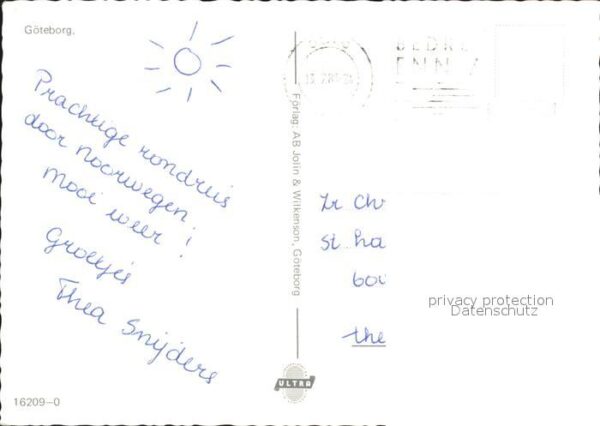 Göteborg.
Prachtige rondreis
door Noorwegen
mooi weer!
Groetjes
Thea Snijders
16209-0
Förlag: AB Jolin & Wilkenson, Göteborg
ULTRA
Zr Chr
St. La
the
privacy protection
Datenschutz